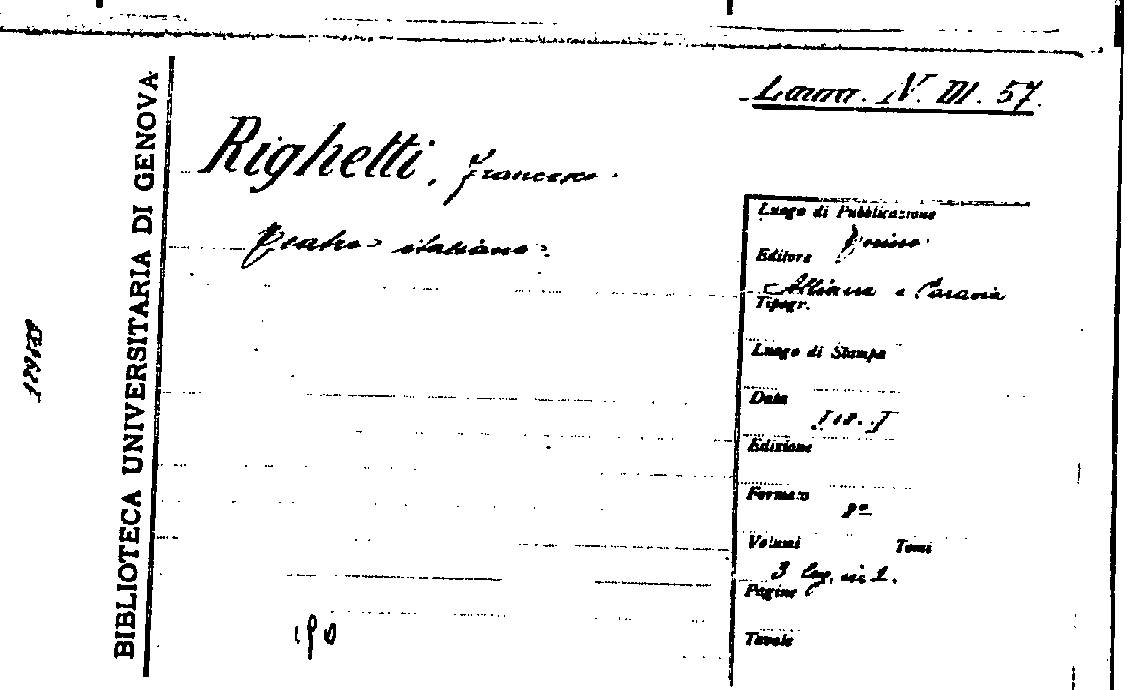 Laura. N. III. 57.
BIBLIOTECA UNIVERSITARIA DI GENOVA
Righetti, Francesco.
Teatro italiano.
Luogo di Pubblicazione
Torino.
Editore
Alliana e Paravia
Tipogr.
Luogo di Stampa
Data
Edizione
Formato
8º
Volumi Tomi
3 leg. in 2.
Pagine
Tavole